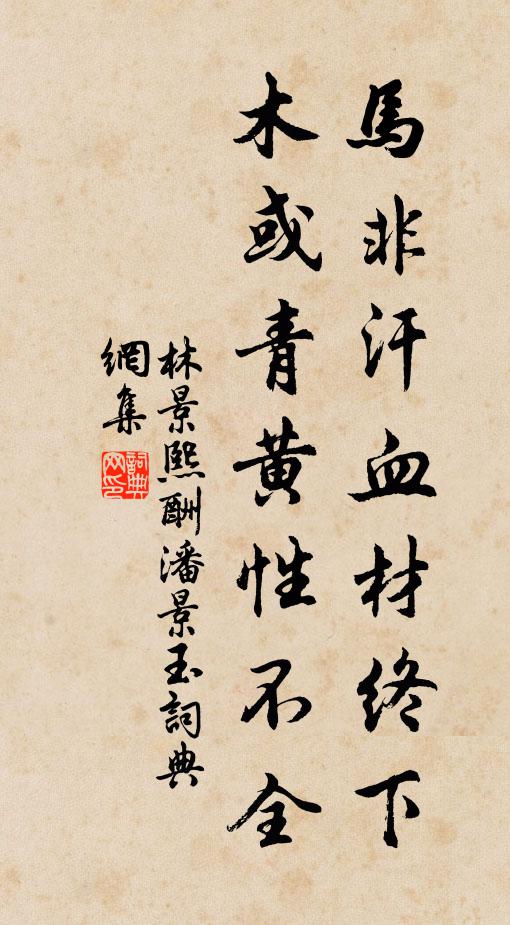 馬非汗血材終下
木或青黃性不全
林景熙酬潘景玉詞典
網集
詞典網印